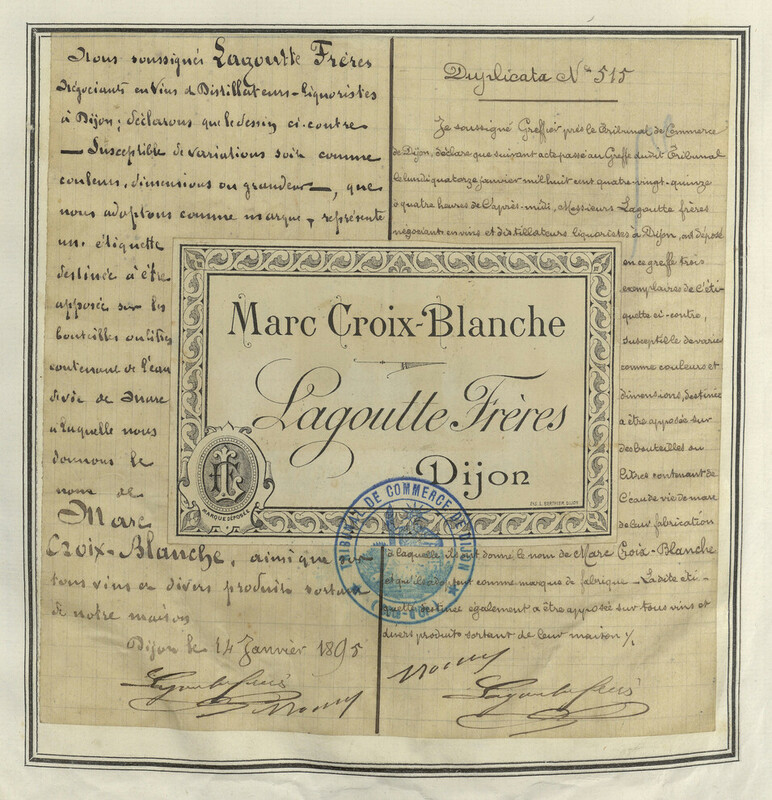 Nous soussignés Lagoutte Frères
Négociants en Vins & Distillateurs-Liquoristes
à Dijon; déclarons que le dessin ci-contre
— Susceptible de variations soit comme
couleurs, dimensions ou grandeur —, que
nous adoptons comme marque, représente
un étiquette
destinée à être
apposée sur les
bouteilles ou litres
contenant de l'eau
de vie de Marc
à laquelle nous
donnons le
nom de
Marc
Croix-Blanche, ainsi que
tous vins et divers produits sortant
de notre maison
Dijon le 14 Janvier 1895
Lagoutte frères
Duplicata N° 515
Je soussigné Greffier près le Tribunal de Commerce
de Dijon, déclare que suivant acte passé au Greffe du dit Tribunal
le lundi quatorze janvier mil huit cent quatre-vingt-quinze
à quatre heures de l'après-midi, Messieurs Lagoutte frères
négociants en vins et distillateurs liquoristes à Dijon, ont déposé
en ce greffe trois
exemplaires de l'éti-
quette ci-contre,
susceptible de varier
comme couleurs et
dimensions, destinée
à être apposée sur
des bouteilles ou
litres contenant de
l'eau de vie de marc
de leur fabrication
à laquelle ils ont donné le nom de Marc Croix-Blanche
et qu'ils adoptent comme marque de fabrique — La dite éti-
quette destinée également à être apposée sur tous vins et
divers produits sortant de leur maison
Lagoutte frères
Marc Croix-Blanche
Lagoutte Frères
Dijon
MARQUE DÉPOSÉE
TRIBUNAL DE COMMERCE DE DIJON